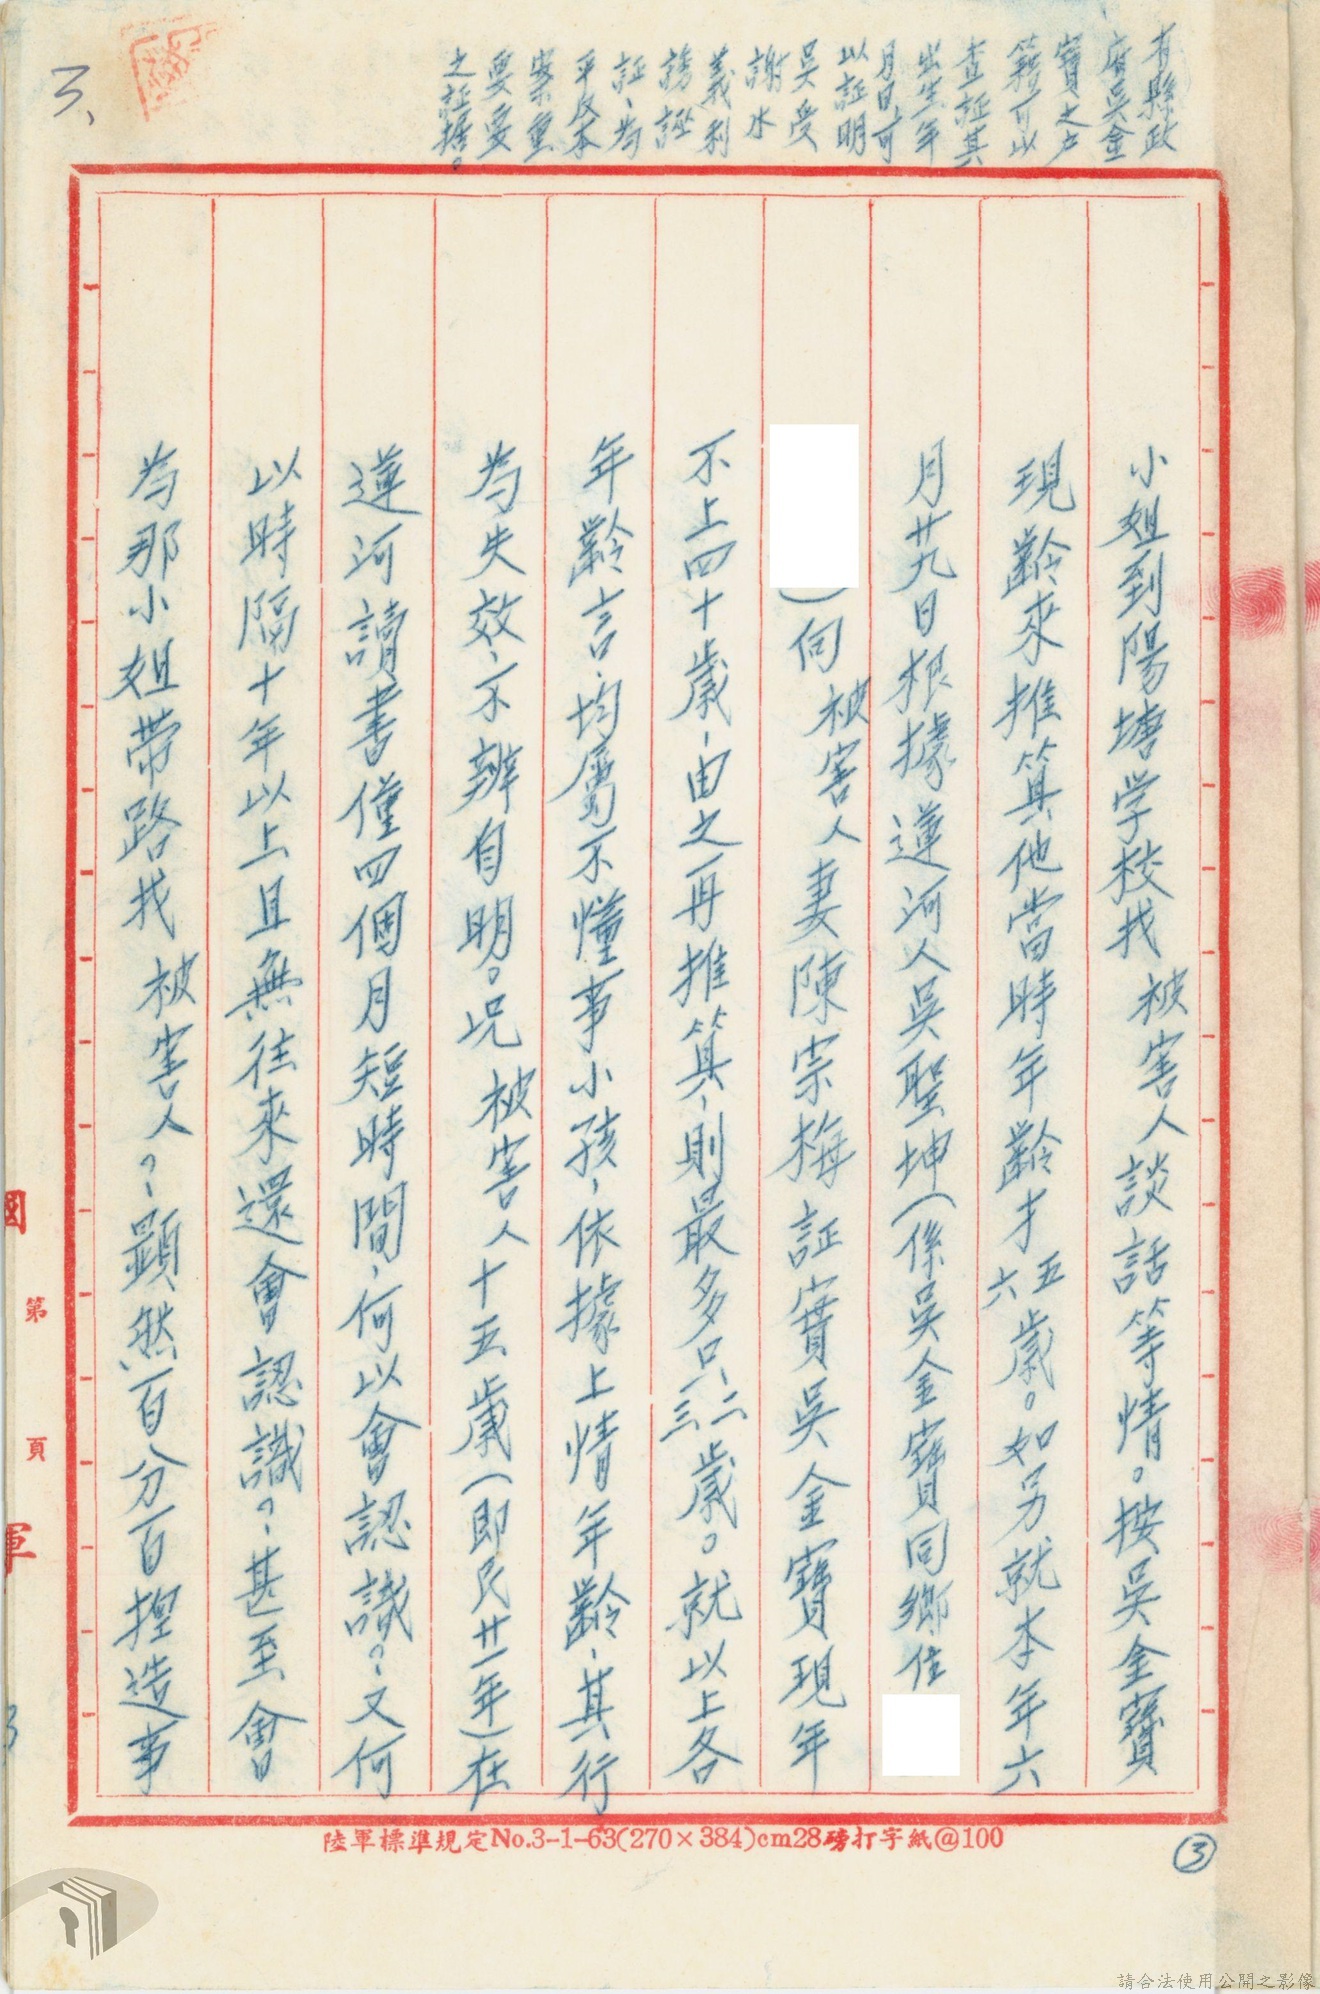 有縣政
府吳金
寶之戶
籍可以
查証其
出生年
月日,可
以証明
吳受
謝水
義利
誘誣
証、為
平反本
案重
要要
之証據。
3、
小姐到陽塘学校找 被害人談話等情。按吳金寶
現齡來推算他當時年齡才五六歲。如另就本年六
月廿九日根據蓮河人吳聖坤(係吳金寶同鄉住
)向 被害人妻陳宗梅証實吳金寶現年
不上四十歲,由之再推算,則最多只二、三歲。就以上各
年齡言,均屬不懂事小孩,依據上情年齡,其行
為失效,不辨自明。况 被害人十五歲(即民廿一年)在
蓮河讀書僅四個月短時間,何以會認識?,又何
以時隔十年以上且無往來還會認識?,甚至會
為那小姐帶路找 被害人?,顯然百分百揑造事
國 第 頁 軍
陸軍標準規定No.3-1-63(270×384)cm28磅打字紙@100
③
請合法使用公開之影像